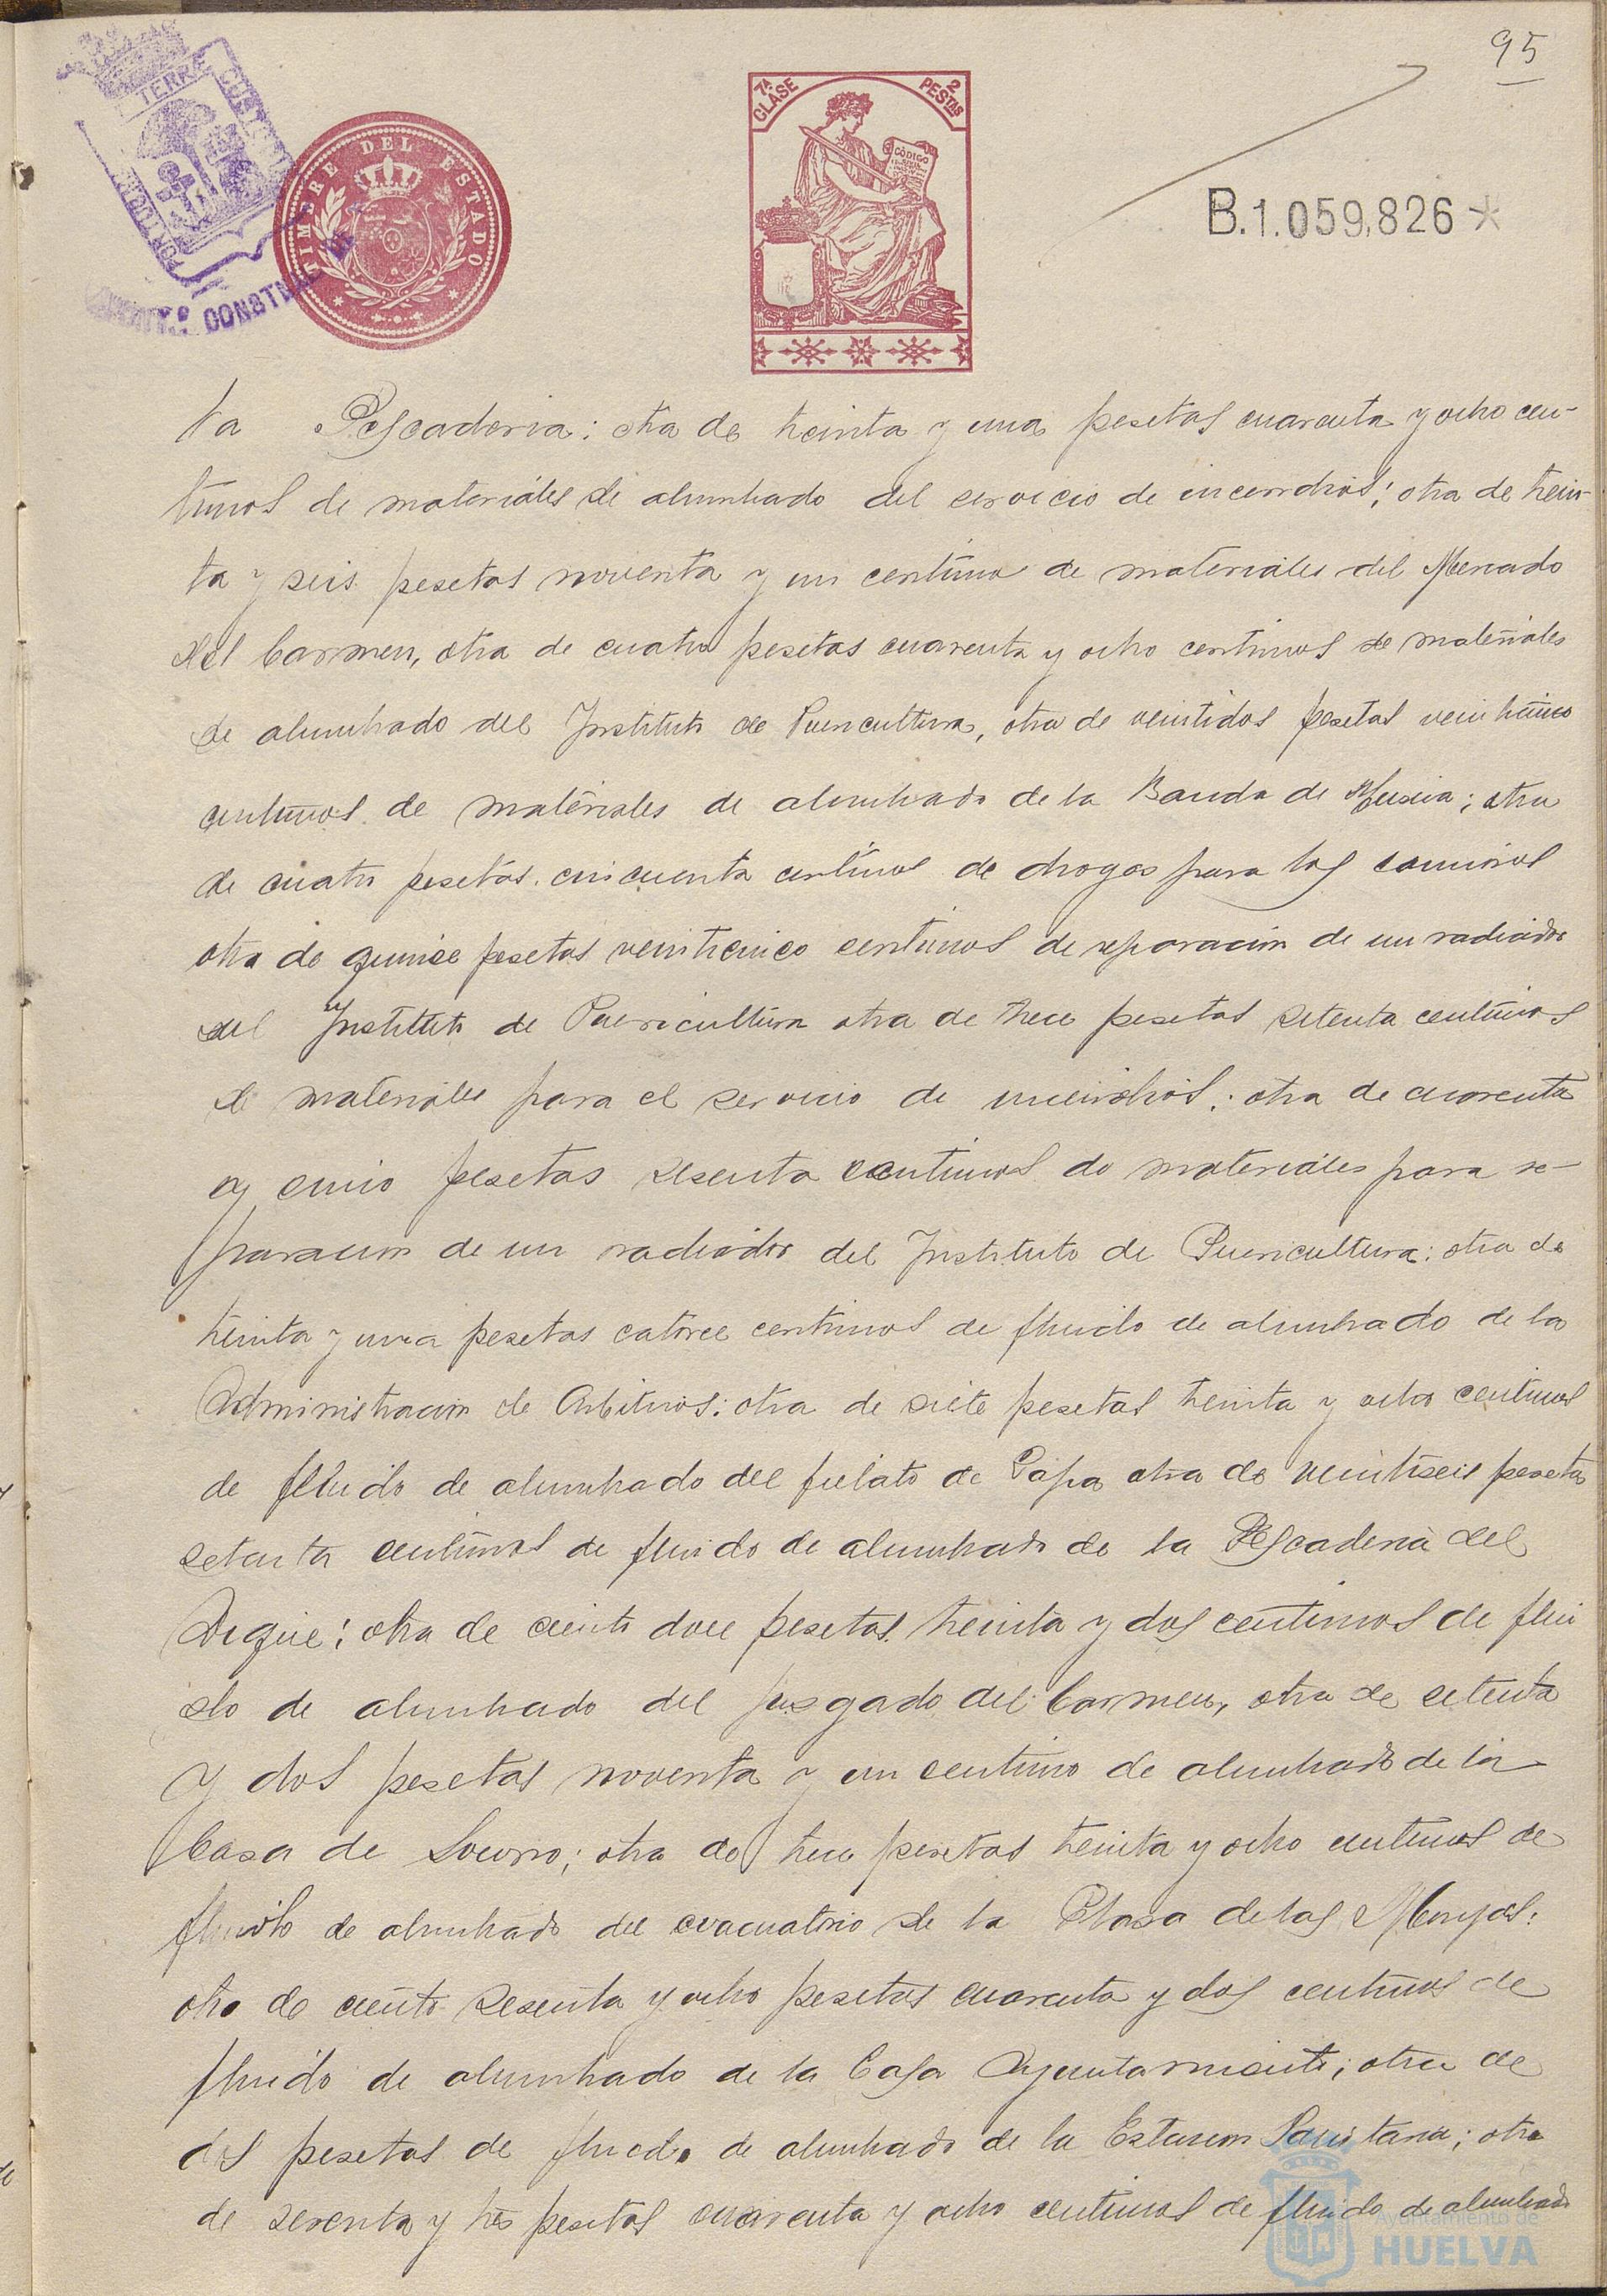 95
TERRÆ CUSTODIA
PORTUS
AYUNT.º CONSTNAL DE
TIMBRE DEL ESTADO
7ª CLASE
2 PESTAS
CÓDIGO
B.1.059,826*
la Pescaderia; otra de treinta y una pesetas cuarenta y ocho cen-
timos de materiales de alumbrado del servicio de incendios; otra de trein-
ta y seis pesetas noventa y un centimo de materiales del Mercado
del Carmen, otra de cuatro pesetas cuarenta y ocho centimos de materiales
de alumbrado del Instituto de Puericultura, otra de veintidos pesetas veinticinco
centimos de materiales de alumbrado de la Banda de Musica; otra
de cuatro pesetas cincuenta centimos de drogas para los caminos
otra de quince pesetas veinticinco centimos de reparacion de un radiador
del Instituto de Puericultura otra de trece pesetas setenta centimos
de materiales para el servicio de incendios; otra de cuarenta
y cinco pesetas sesenta centimos de materiales para re-
paracion de un radiador del Instituto de Puericultura: otra de
treinta y una pesetas catorce centimos de fluido de alumbrado de la
Administracion de Arbitrios: otra de siete pesetas treinta y ocho centimos
de fluido de alumbrado del fielato de otra de veintiseis pesetas
setenta centimos de fluido de alumbrado de la Pescaderia del
Dique; otra de ciento doce pesetas treinta y dos centimos de flui
do de alumbrado del jusgado del Carmen, otra de setenta
y dos pesetas noventa y un centimo de alumbrado de la
Casa de Socorro; otra de trece pesetas treinta y ocho centimos de
fluido de alumbrado del evacuatorio de la Plasa de las Monjas:
otra de ciento sesenta y ocho pesetas cuarenta y dos centimos de
fluido de alumbrado de la Casa Ayuntamiento; otra de
dos pesetas de fluido de alumbrado de la Estacion Sanitaria; otra
de y tres pesetas cuarenta y ocho centimos de fluido de alumbrado
Ayuntamiento de
HUELVA